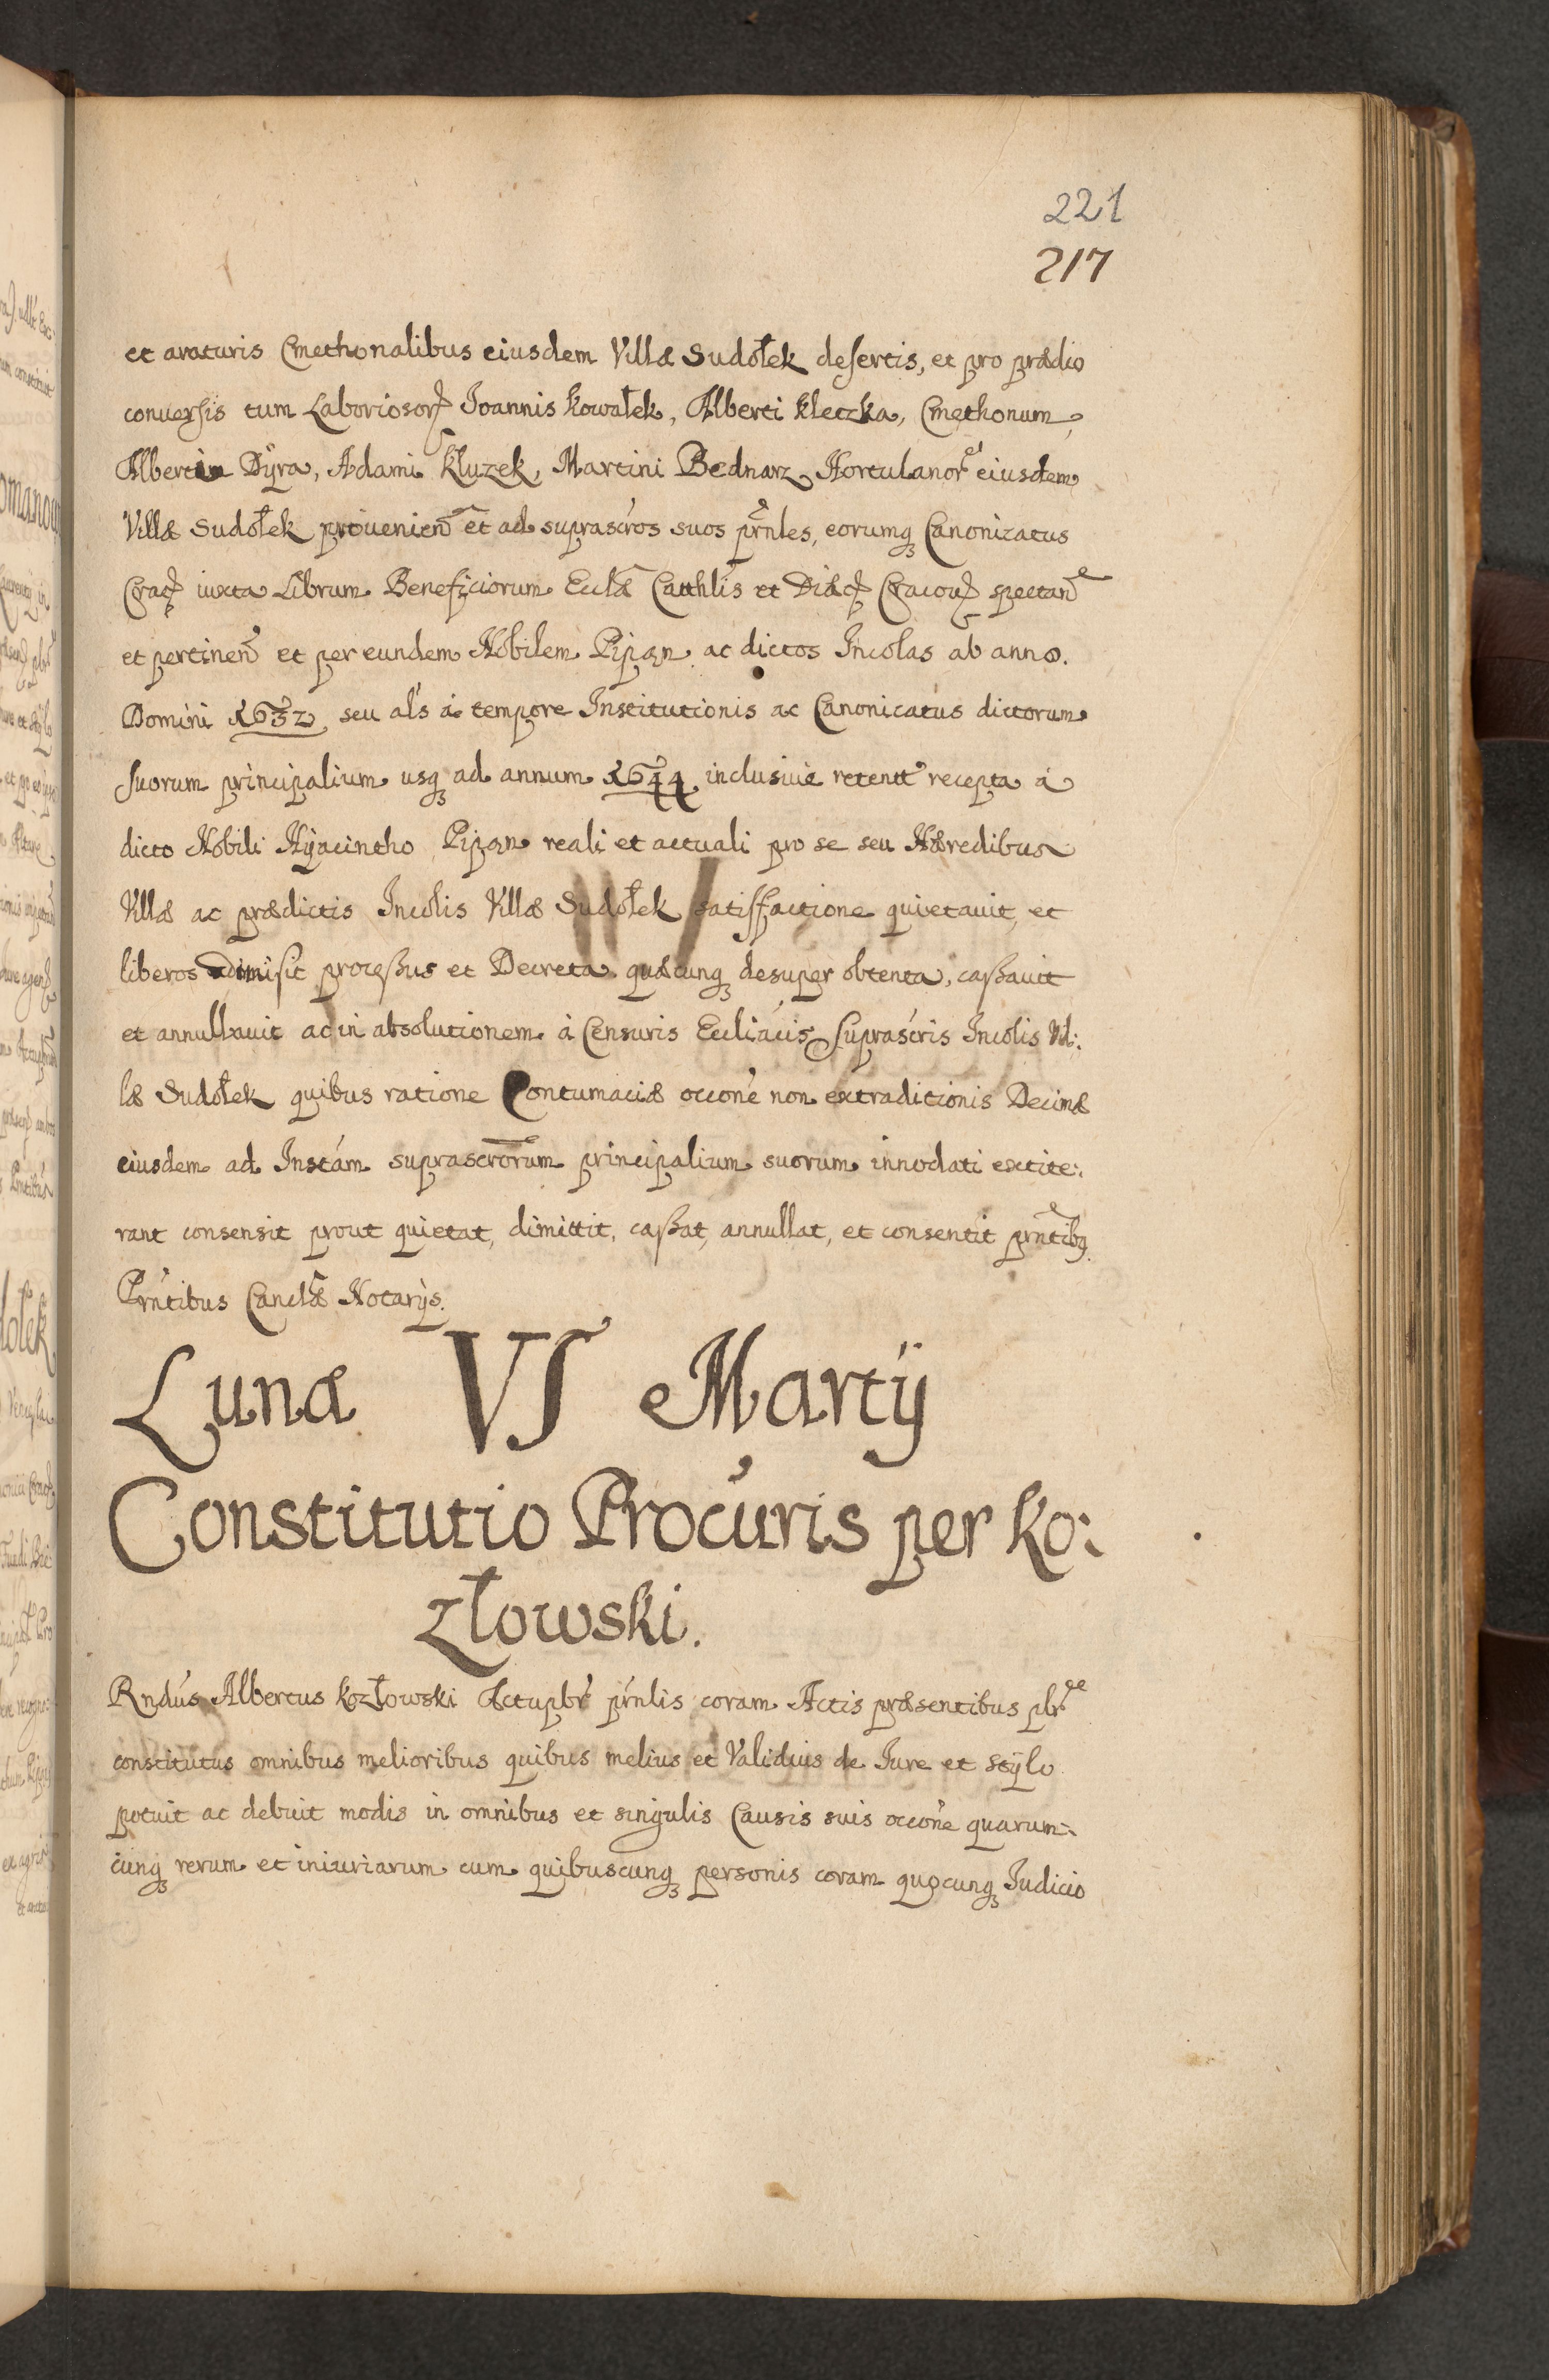 221
217
et araturis Cmethonalibus eiusdem Villæ Sudołek desertis, et pro prædio
conuersis tum Laboriosorꝝ Joannis Kowałek, Alberti Kletzka, Cmethonum,
Alberti Dÿra, Adami Kluzek, Martini Bednarz, Hortulanor̃ eiusdem
Villæ Sudołek prouenien̄ et ad suprascr̃os suos pr̃nles, eorumqꝫ Canonicatus
Cracꝭ iuxta Librum Beneficiorum Eccl̃æ Catthl̃is et Diæcꝭ Cracouꝭ spectan̄
et pertinen̄ et per eundem Nobilem Pipan ac dictos Incolas ab anno.
Domini 1632 seu al̃s á tempore Institutionis ac Canonicatus dictorum
suorum principalium usqꝫ ad annum 1644 inclusiuè retent recepta á
dicto Nobili Hyacintho Pipan reali et actuali pro se seu Hæredibus
Villæ ac prædictis Incolis Villæ Sudołek satisfactione quietauit, et
liberos dimisit processus et Decreta quæcunqꝫ desuper obtenta, cassauit
et annullauit ac in absolutionem à Censuris Eccliácis suprascr̃is Incolis Vil:
læ Sudołek quibus ratione Contumaciæ occoñe non extraditionis Decimæ
eiusdem ad Instám suprascr̃orum principalium suorum innodati extite:
rant consensit prout quietat, dimittit, cassat, annullat, et consentit prñtibꝫ
Prñtibus Cancl̃æ Notarÿs.
Lunæ VI Martÿ
Constitutio Procúris per Ko:
złowski.
Rndús Albertus Kozłowski Actupbr̃ prñlis coram Actis præsentibus pl̃r
constitutus omnibus melioribus quibus melius et Validius de Jure et stÿlo
potuit ac debuit modis in omnibus et singulis Causis suis occoñe quarum:
cunqꝫ rerum et iniuriarum cum quibuscunqꝫ personis coram quocunqꝫ Judicio